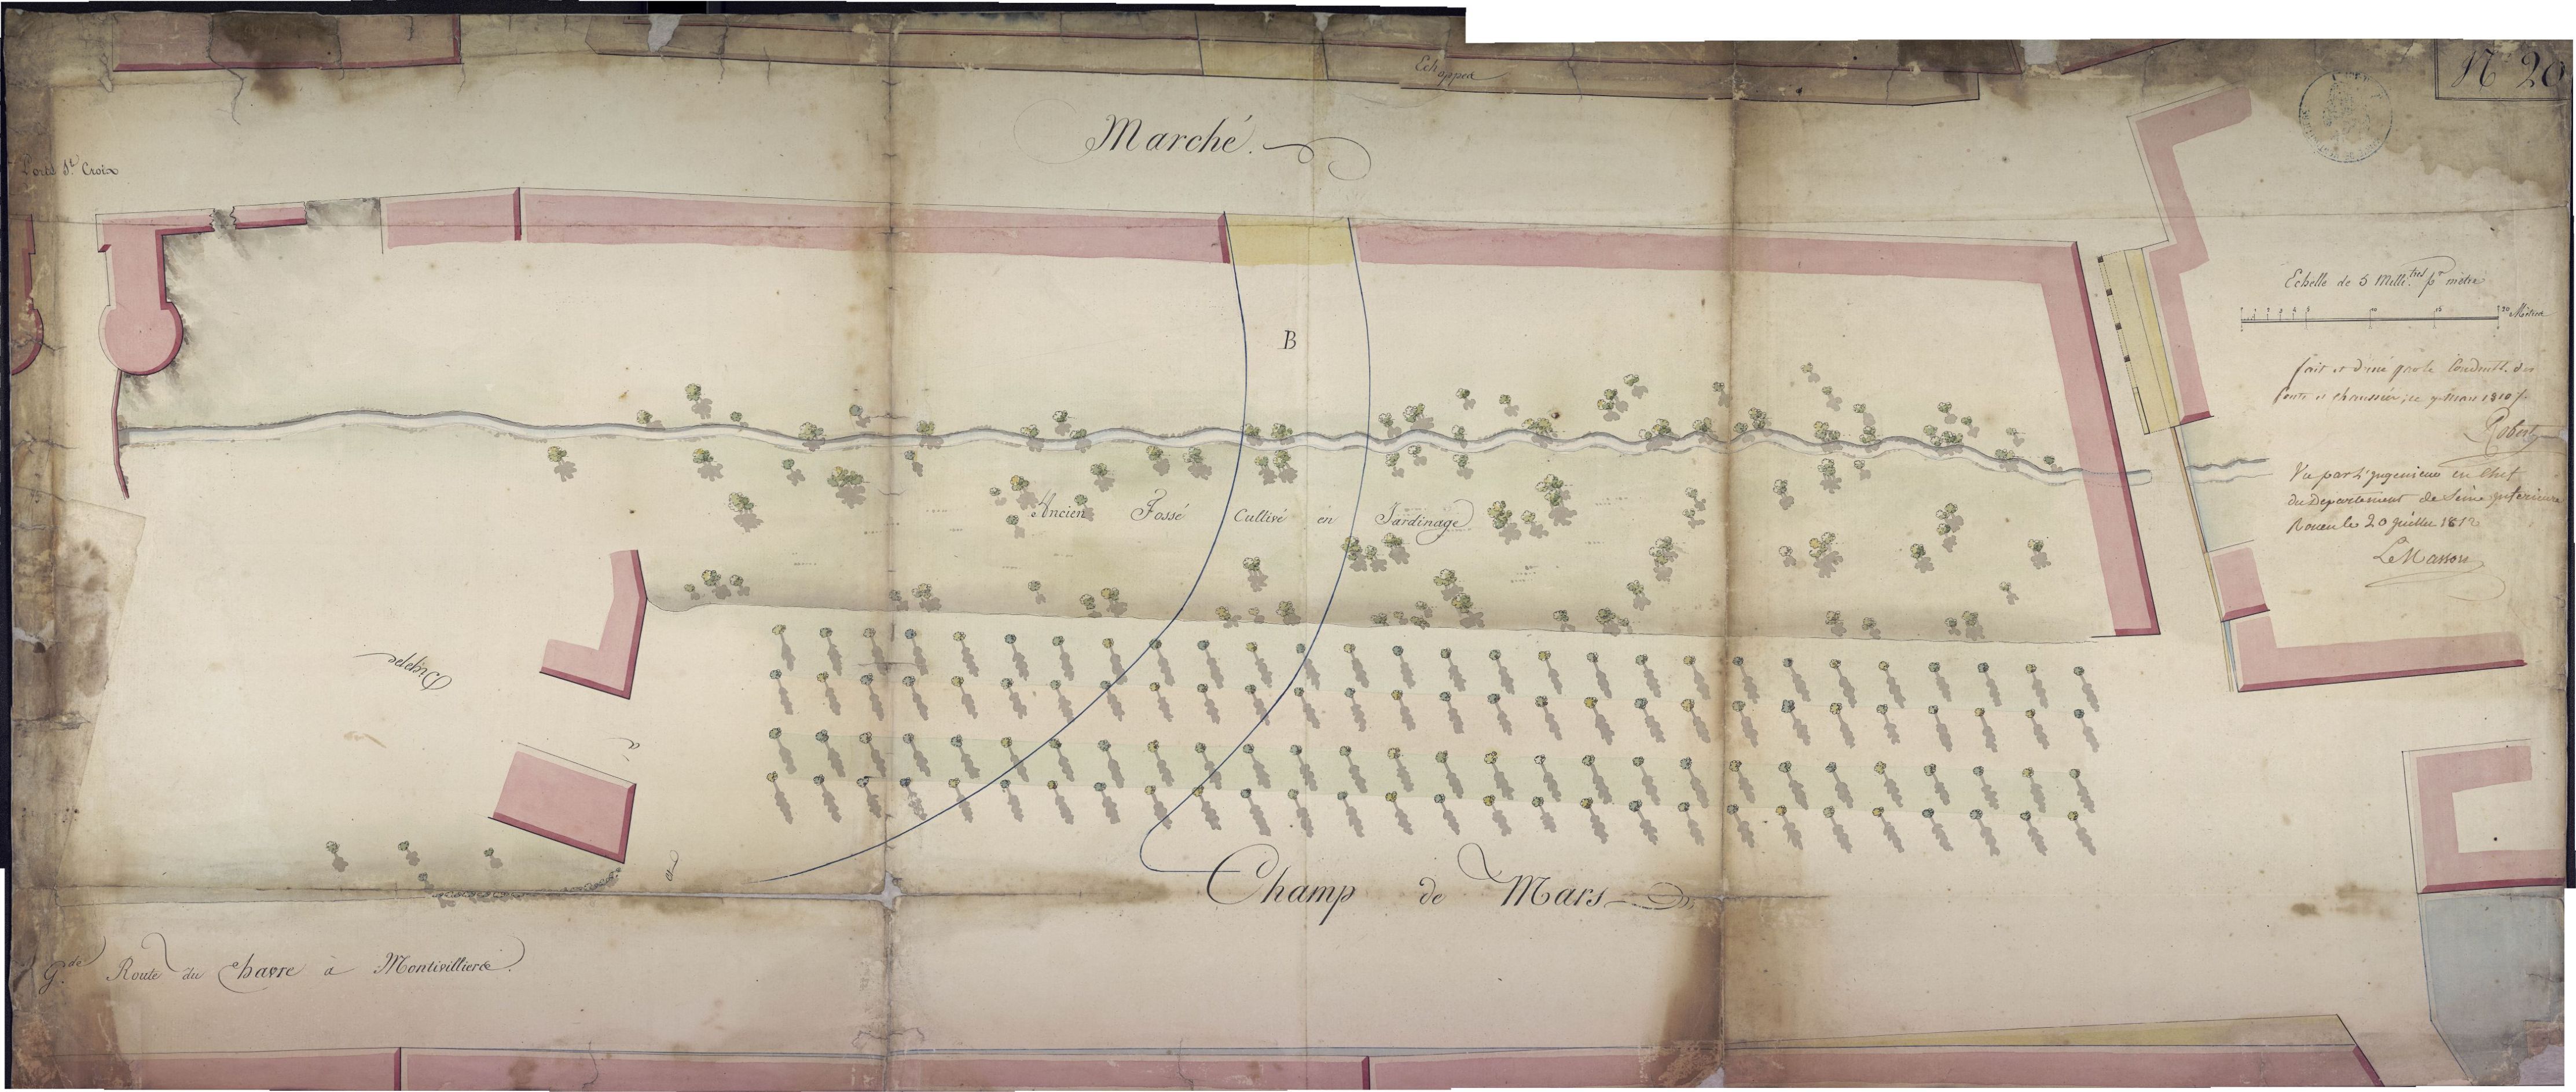 Echoppes
N° 20
Marché.
Porte St. Croix
Echelle de 5 Milli.tres pr. mètre
5 10 15 20 Mètres
B
fait et dessiné par le Conduct.r des
Ponts et chaussées, ce 9 Mars 1810
Robert
Vu par l'ingenieur en Chef
du Departement de Seine inferieure
Rouen le 20 juillet 1812
Le Masson
Ancien Fossé Cultivé en Jardinage
Dieppe
à
de
Champ de Mars
Gde. Route du Havre à Montivilliers.